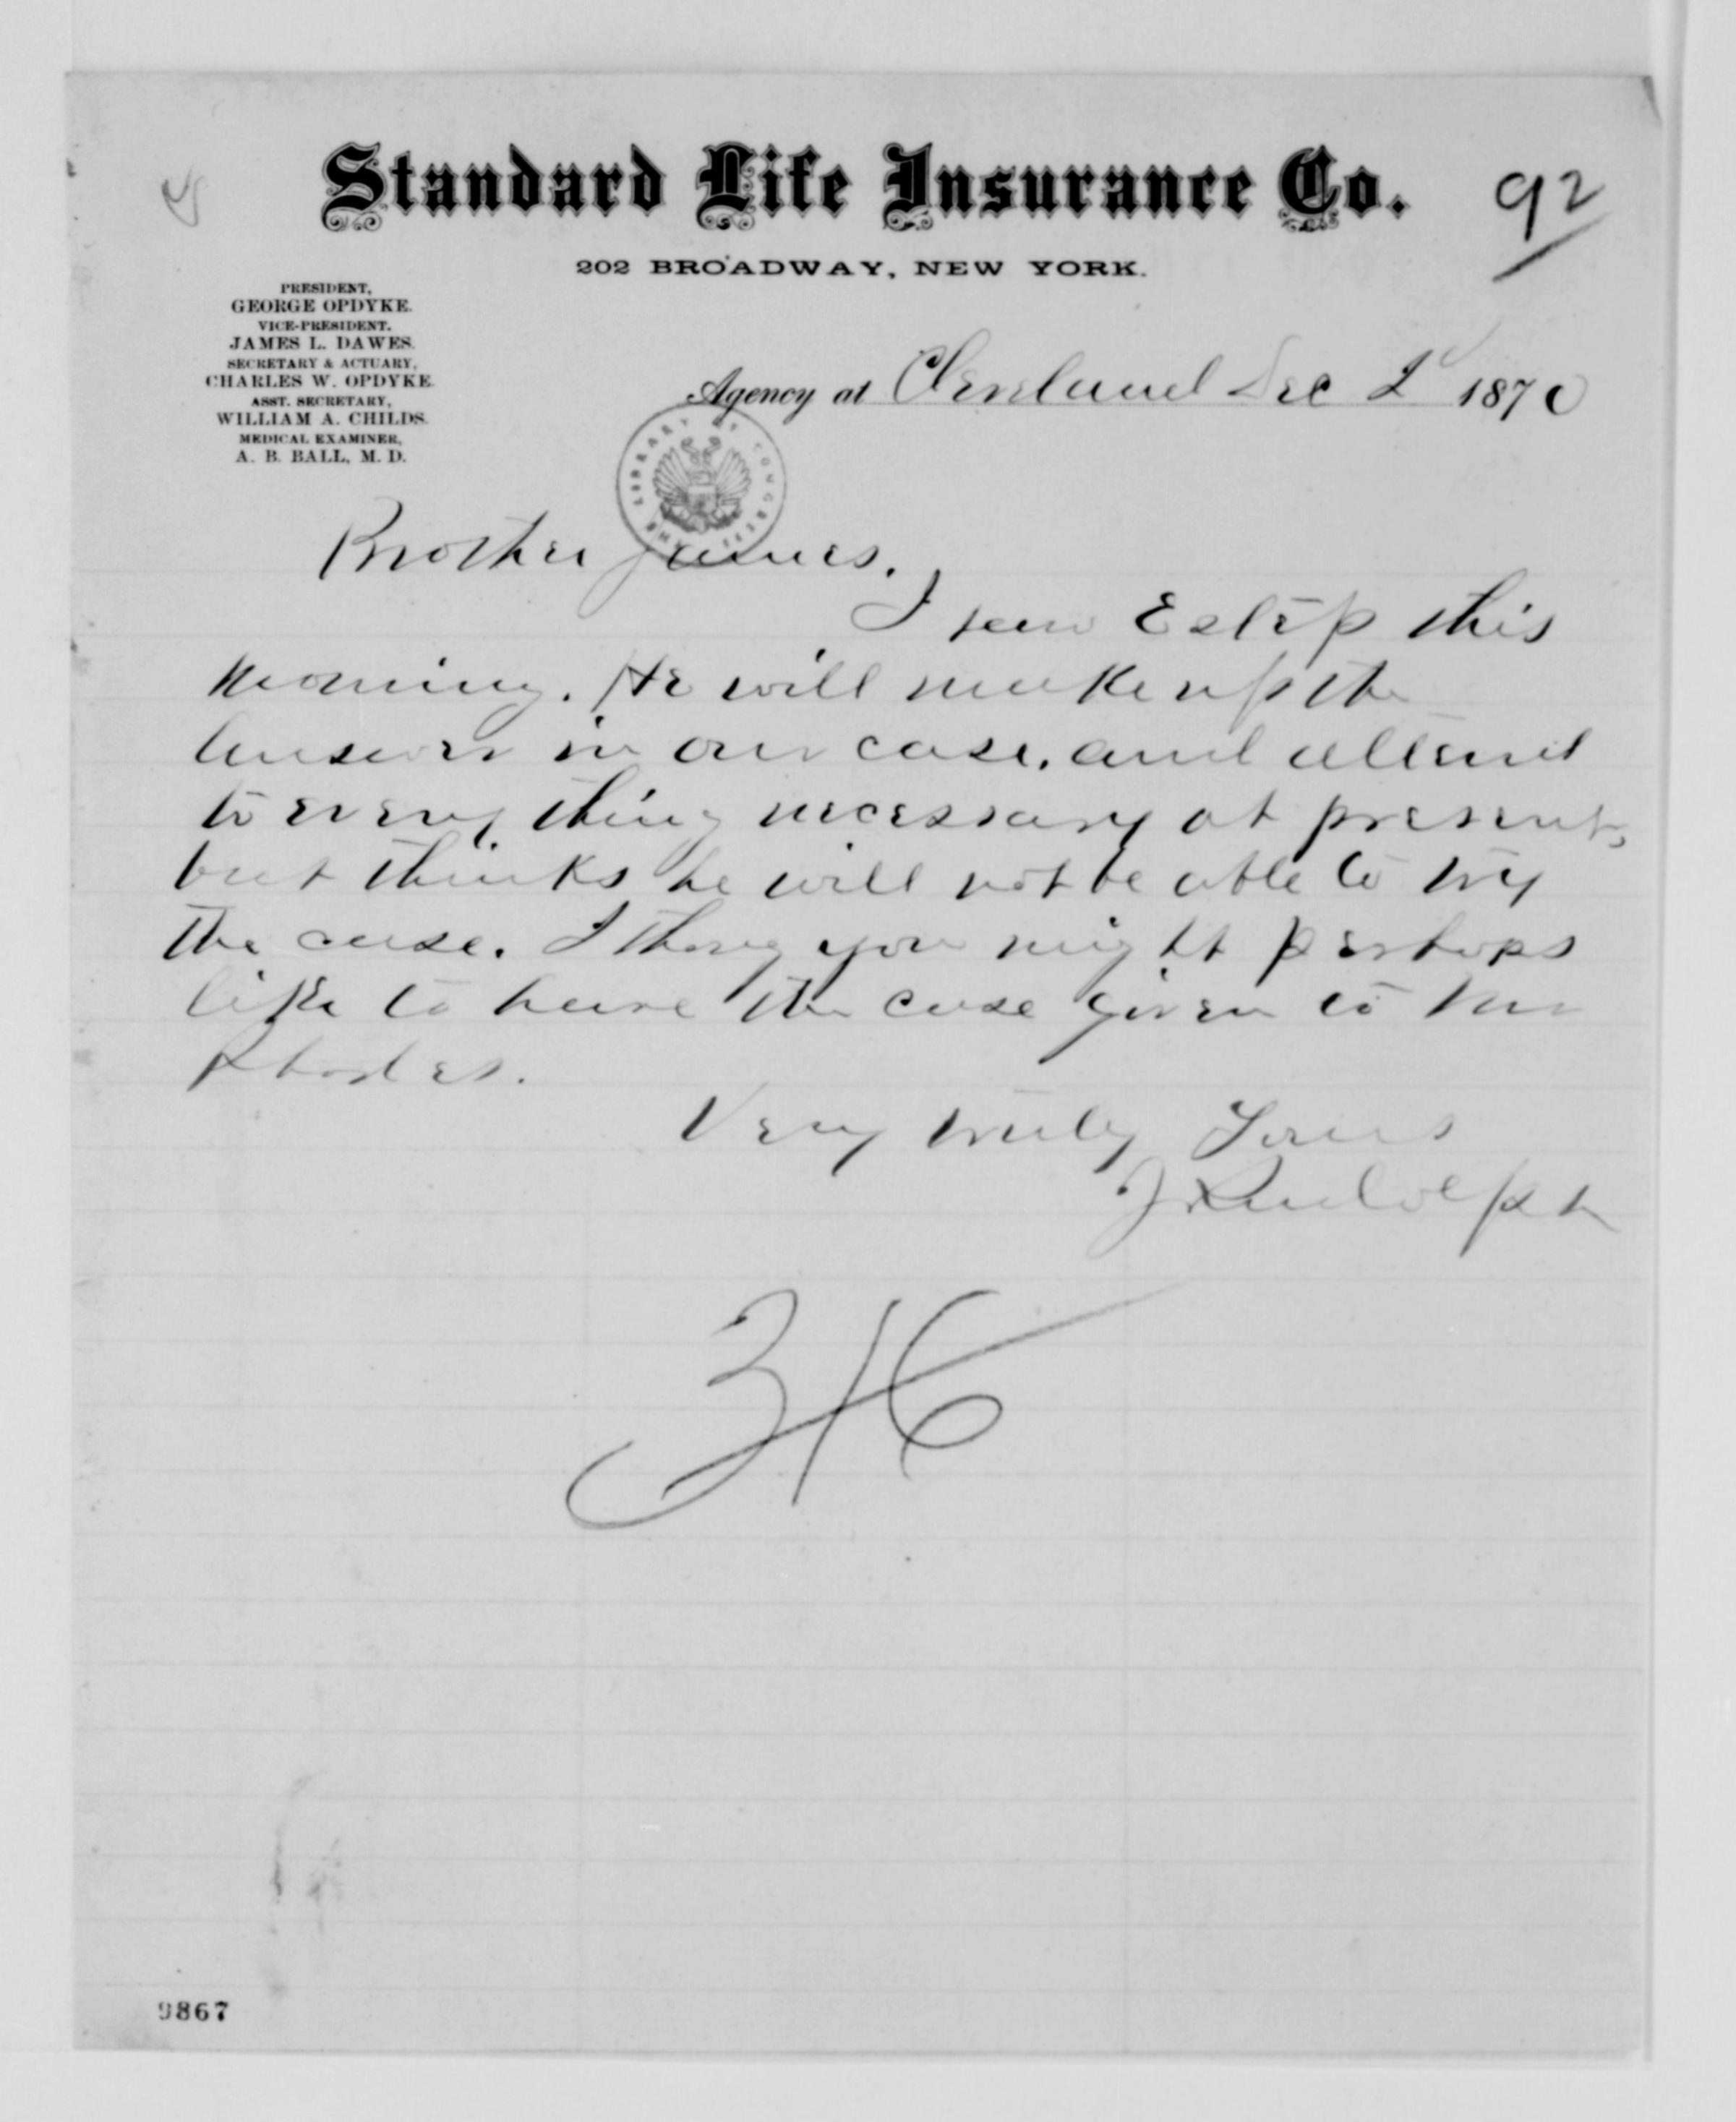 Standard Life Insurance Co.
92
202 BROADWAY, NEW YORK.
PRESIDENT,
GEORGE OPDYKE.
VICE-PRESIDENT.
JAMES L. DAWES.
SECRETARY & ACTUARY,
CHARLES W. OPDYKE.
ASST. SECRETARY,
WILLIAM A. CHILDS.
MEDICAL EXAMINER,
A. B. BALL, M. D.
Agency at Cleveland Dec 2d 1870
LIBRARY OF CONGRESS
Brother James.
I saw Estep this
morning. He will make up the
Answer in our case, and attend
to every thing necessary at present,
but thinks he will not be able to try
the case. I thoug you might perhaps
like to have the case given to Mr
Rhodes.
Very truly Yours
J Rudolph
9867